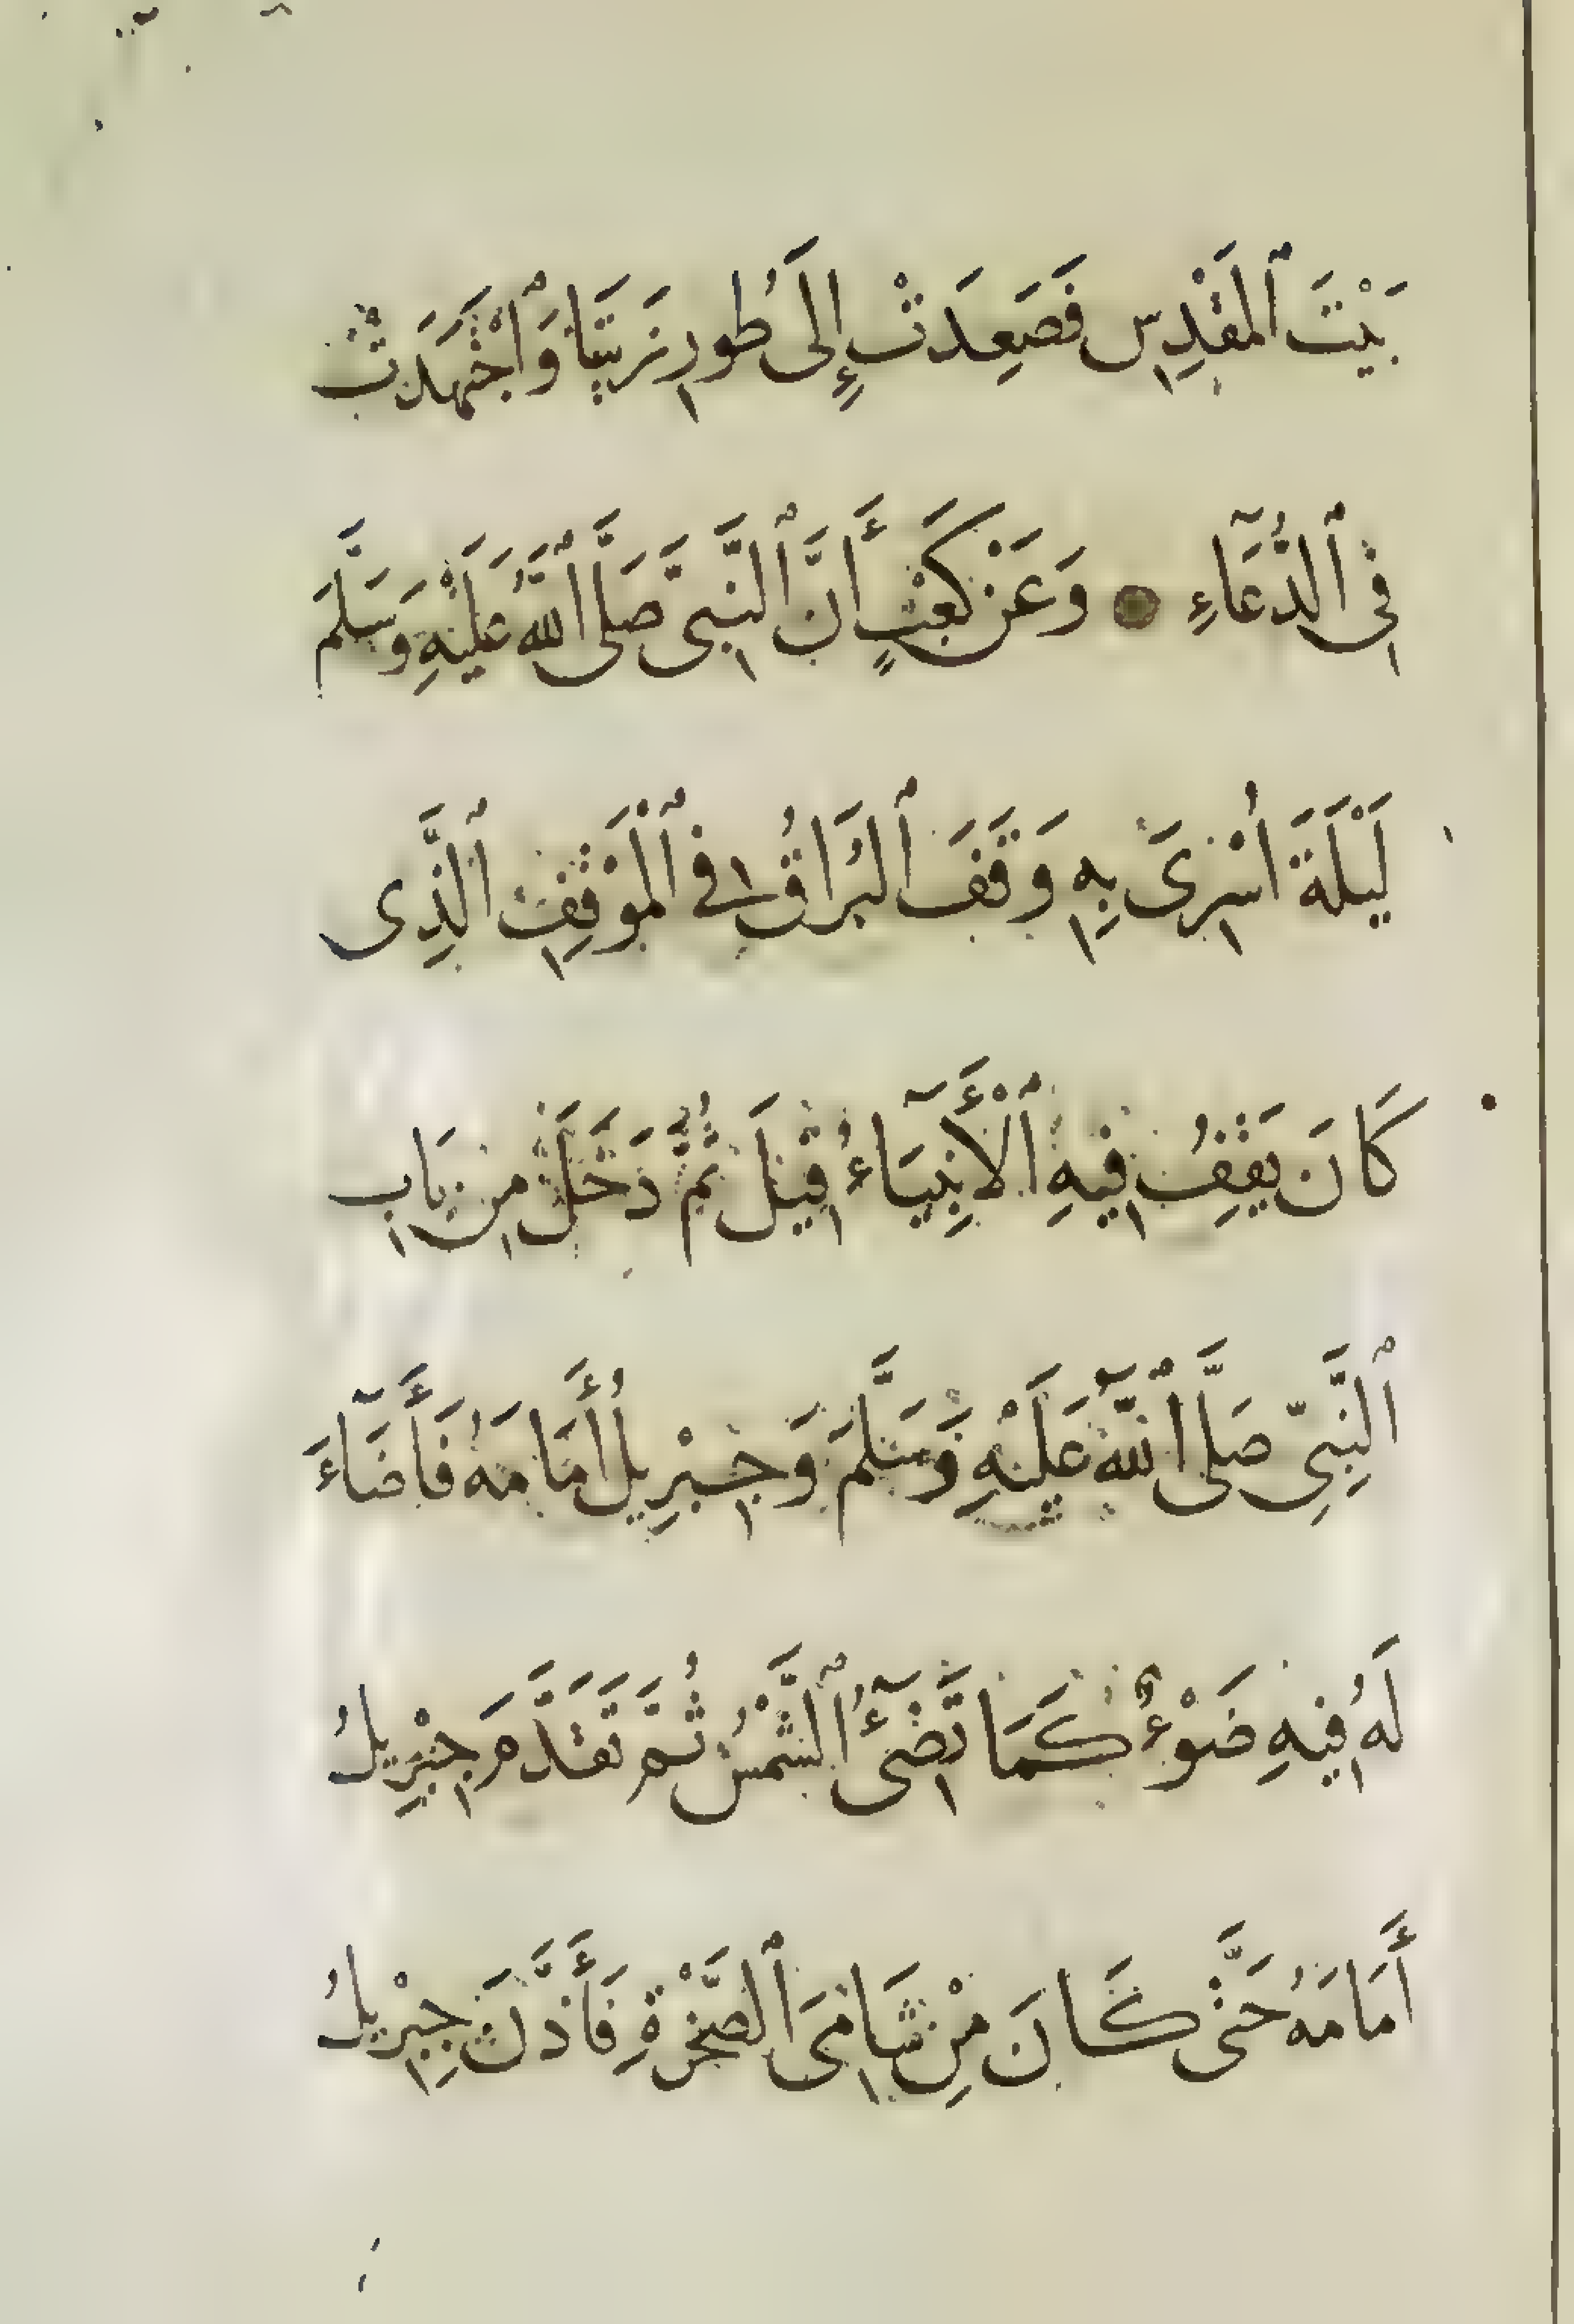 بَيْتَ ٱلمَقْدِسِ فَصَعِدَتْ إِلَى طُورِ زَيتَا وَٱجْتَهَدَتْ
فِى ٱلدُّعَآءِ وَعَنْ كَعْبٍ أَنَّ ٱلنَّبِىَّ صَلَّى ٱللَّهُ عَلَيْهِ وَسَلَّمَ
لَيْلَةَ أُسْرِىَ بِهِ وَقَفَ ٱلبُرَاقُ فِى ٱلْمَوْقِفِ ٱلَّذِى
كَانَ يَقِفُ فِيهِ ٱلْأَنبِيَآءُ قِيلَ ثُمَّ دَخَلَ مِن بَابِ
ٱلنَّبِىِّ صَلَّى ٱللَّهُ عَلَيْهِ وَسَلَّمَ وَجِبْرِيلُ أَمَامَهُ فَأَضَآءَ
لَهُ فِيهِ ضَوْءٌ كَمَا تُضِىٓءُ ٱلشَّمْسُ ثُمَّ تَقَدَّمَ جِبْرِيلُ
أَمَامَهُ حَتَّى كَانَ مِنْ شَامِىِّ ٱلصَّخْرَةِ فَأَذَّنَ جِبْرِيلُ